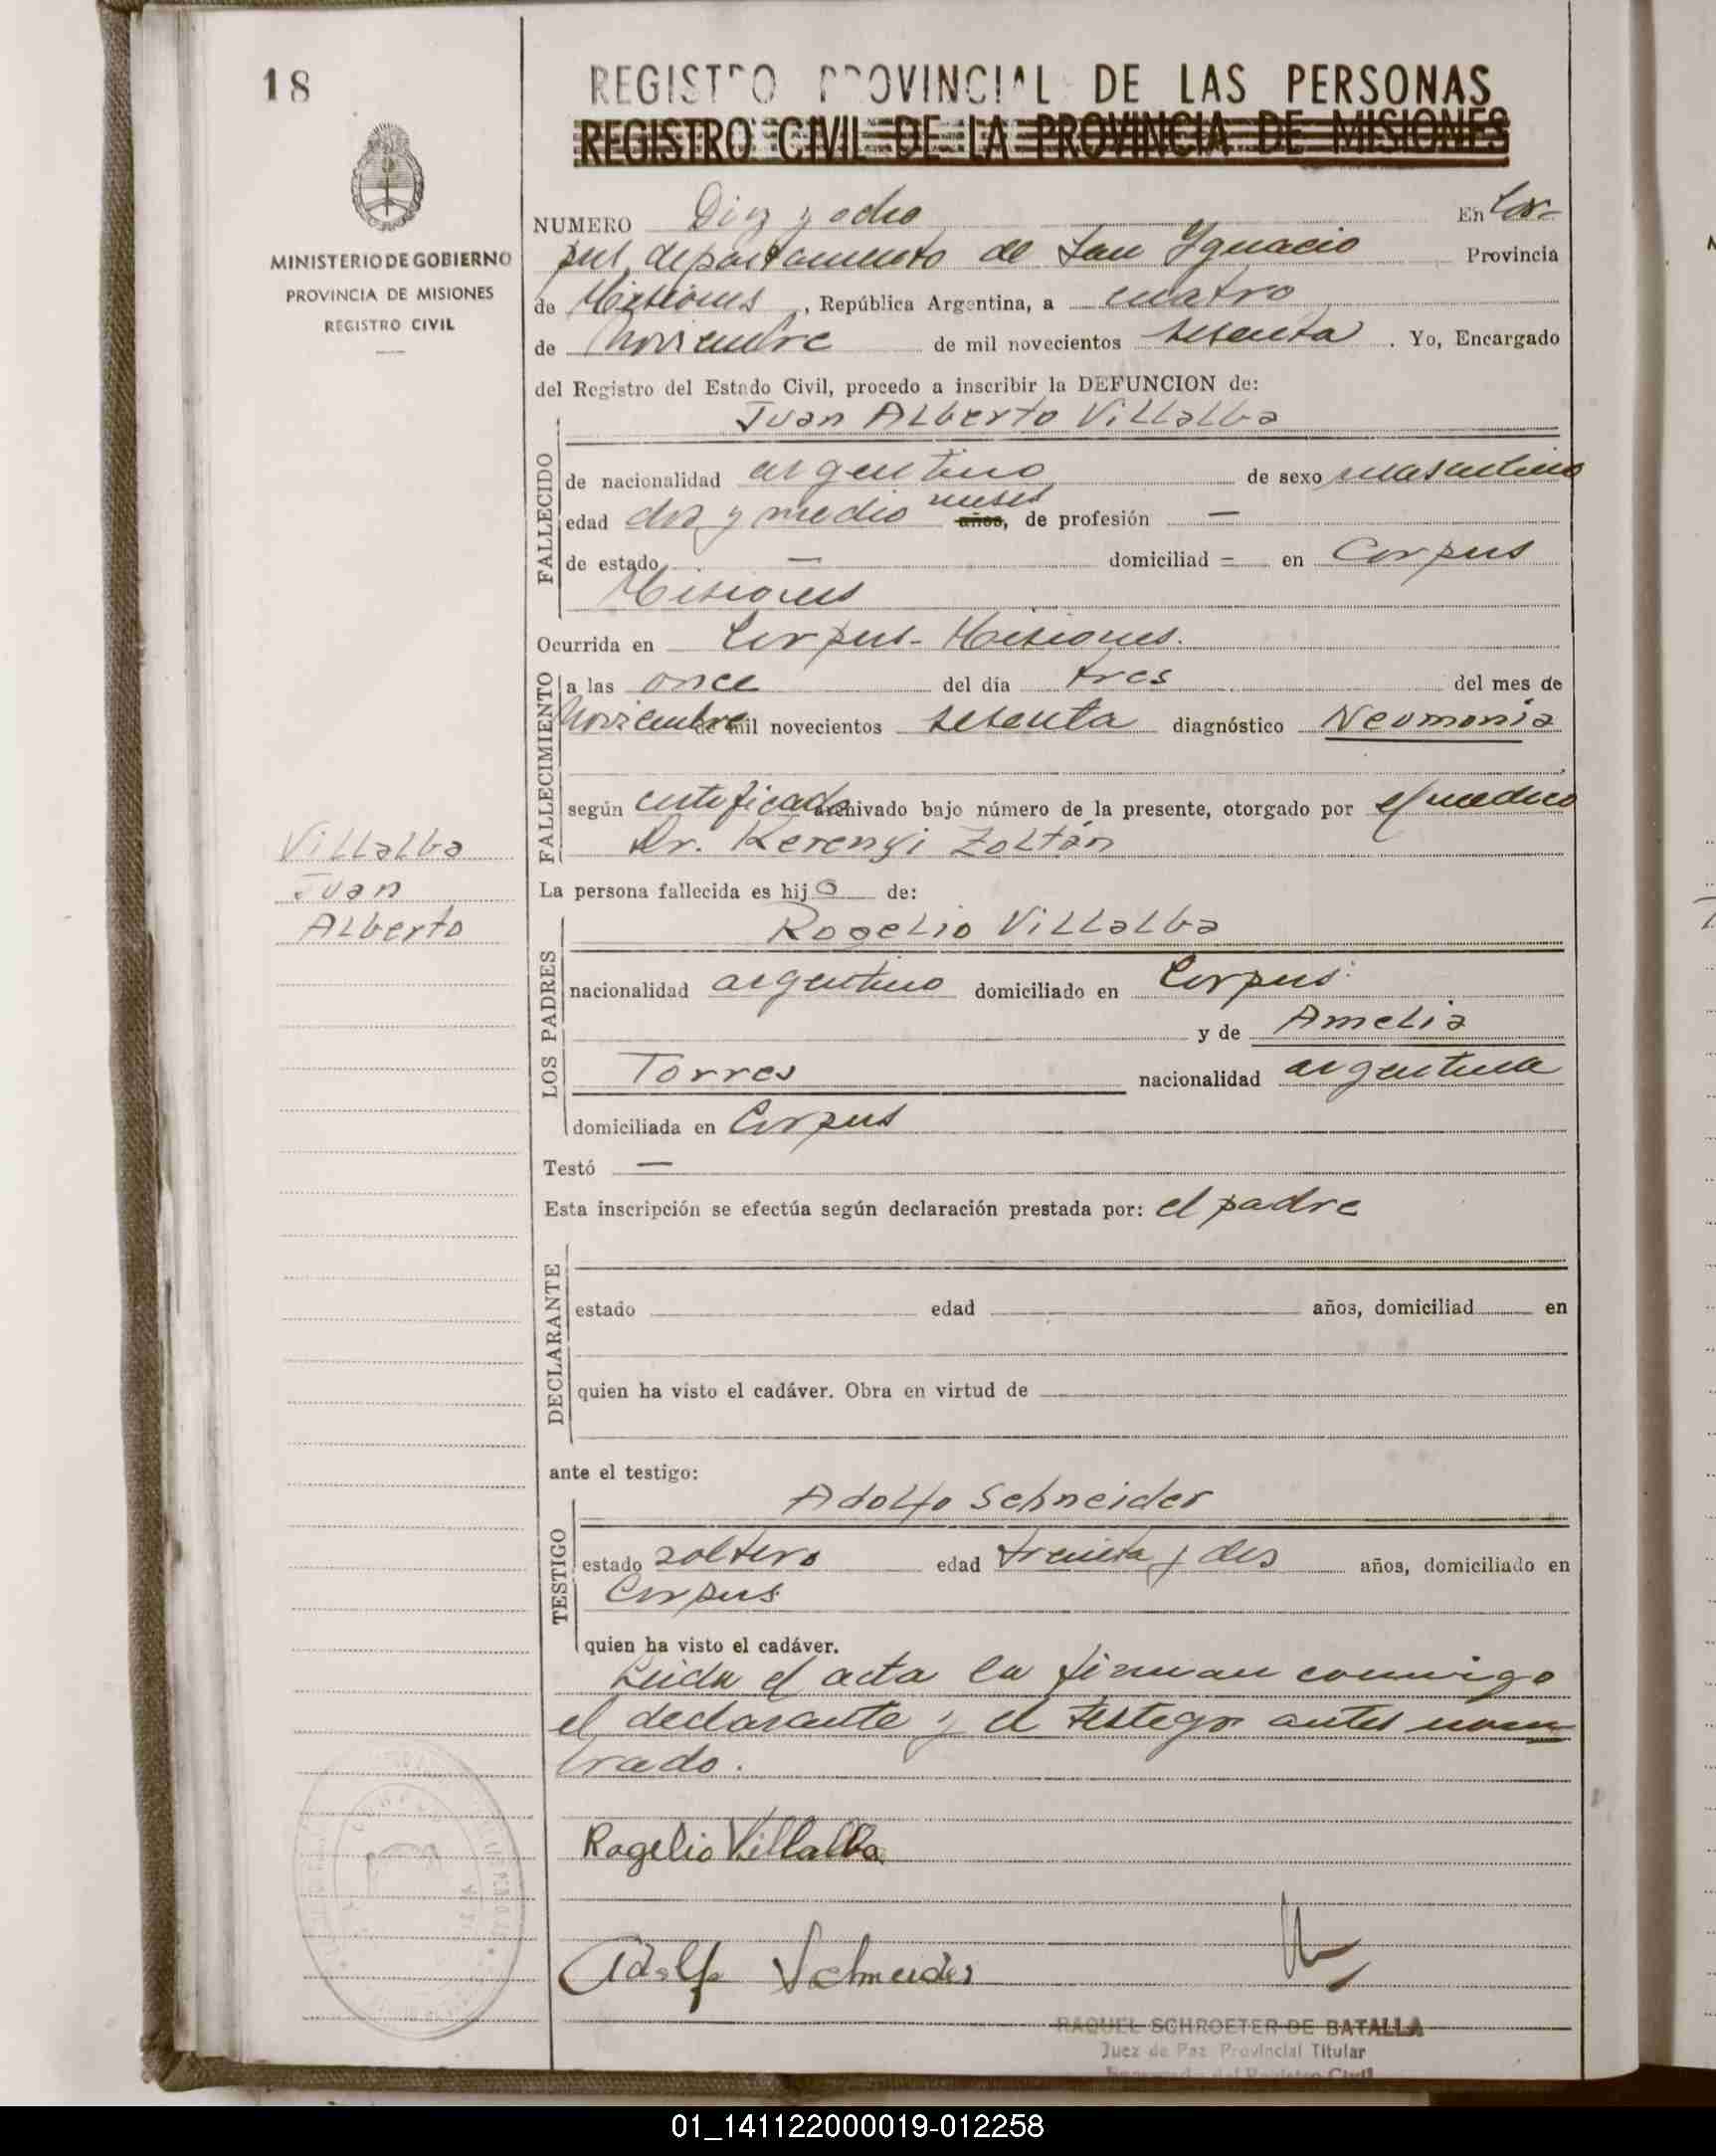 18
REGISTRO PROVINCIAL DE LAS PERSONAS
REGISTRO CIVIL DE LA PROVINCIA DE MISIONES
MINISTERIO DE GOBIERNO
PROVINCIA DE MISIONES
REGISTRO CIVIL
NUMERO Diez y ocho En Cor-
pus departamento de San Ignacio Provincia
de Misiones, República Argentina, a cuatro
de Noviembre de mil novecientos sesenta. Yo, Encargado
del Registro del Estado Civil, procedo a inscribir la DEFUNCION de:
Juan Alberto Villalba
FALLECIDO
de nacionalidad argentino de sexo masculino
meses
edad dos y medio años, de profesión —
de estado — domiciliad = en Corpus
Misiones
Ocurrida en Corpus - Misiones.
FALLECIMIENTO
a las once del día tres del mes de
Noviembre de mil novecientos sesenta diagnóstico Neumonia
según certificado archivado bajo número de la presente, otorgado por el medico
Dr. Kerenyi Zoltán
Villalba
Juan
Alberto
La persona fallecida es hijo de:
LOS PADRES
Rogelio Villalba
nacionalidad argentino domiciliado en Corpus
y de Amelia
Torres nacionalidad argentina
domiciliada en Corpus
Testó —
Esta inscripción se efectúa según declaración prestada por: el padre
DECLARANTE
estado edad años, domiciliad en
quien ha visto el cadáver. Obra en virtud de
ante el testigo:
Adolfo Schneider
TESTIGO
estado soltero edad treinta y dos años, domiciliado en
Corpus
quien ha visto el cadáver.
Leida el acta la firman conmigo
el declarante y el testigo antes nom
brado.
Rogelio Villalba
Adolfo Schneider
RAQUEL SCHROETER DE BATALLA
Juez de Paz Provincial Titular
01_141122000019-012258